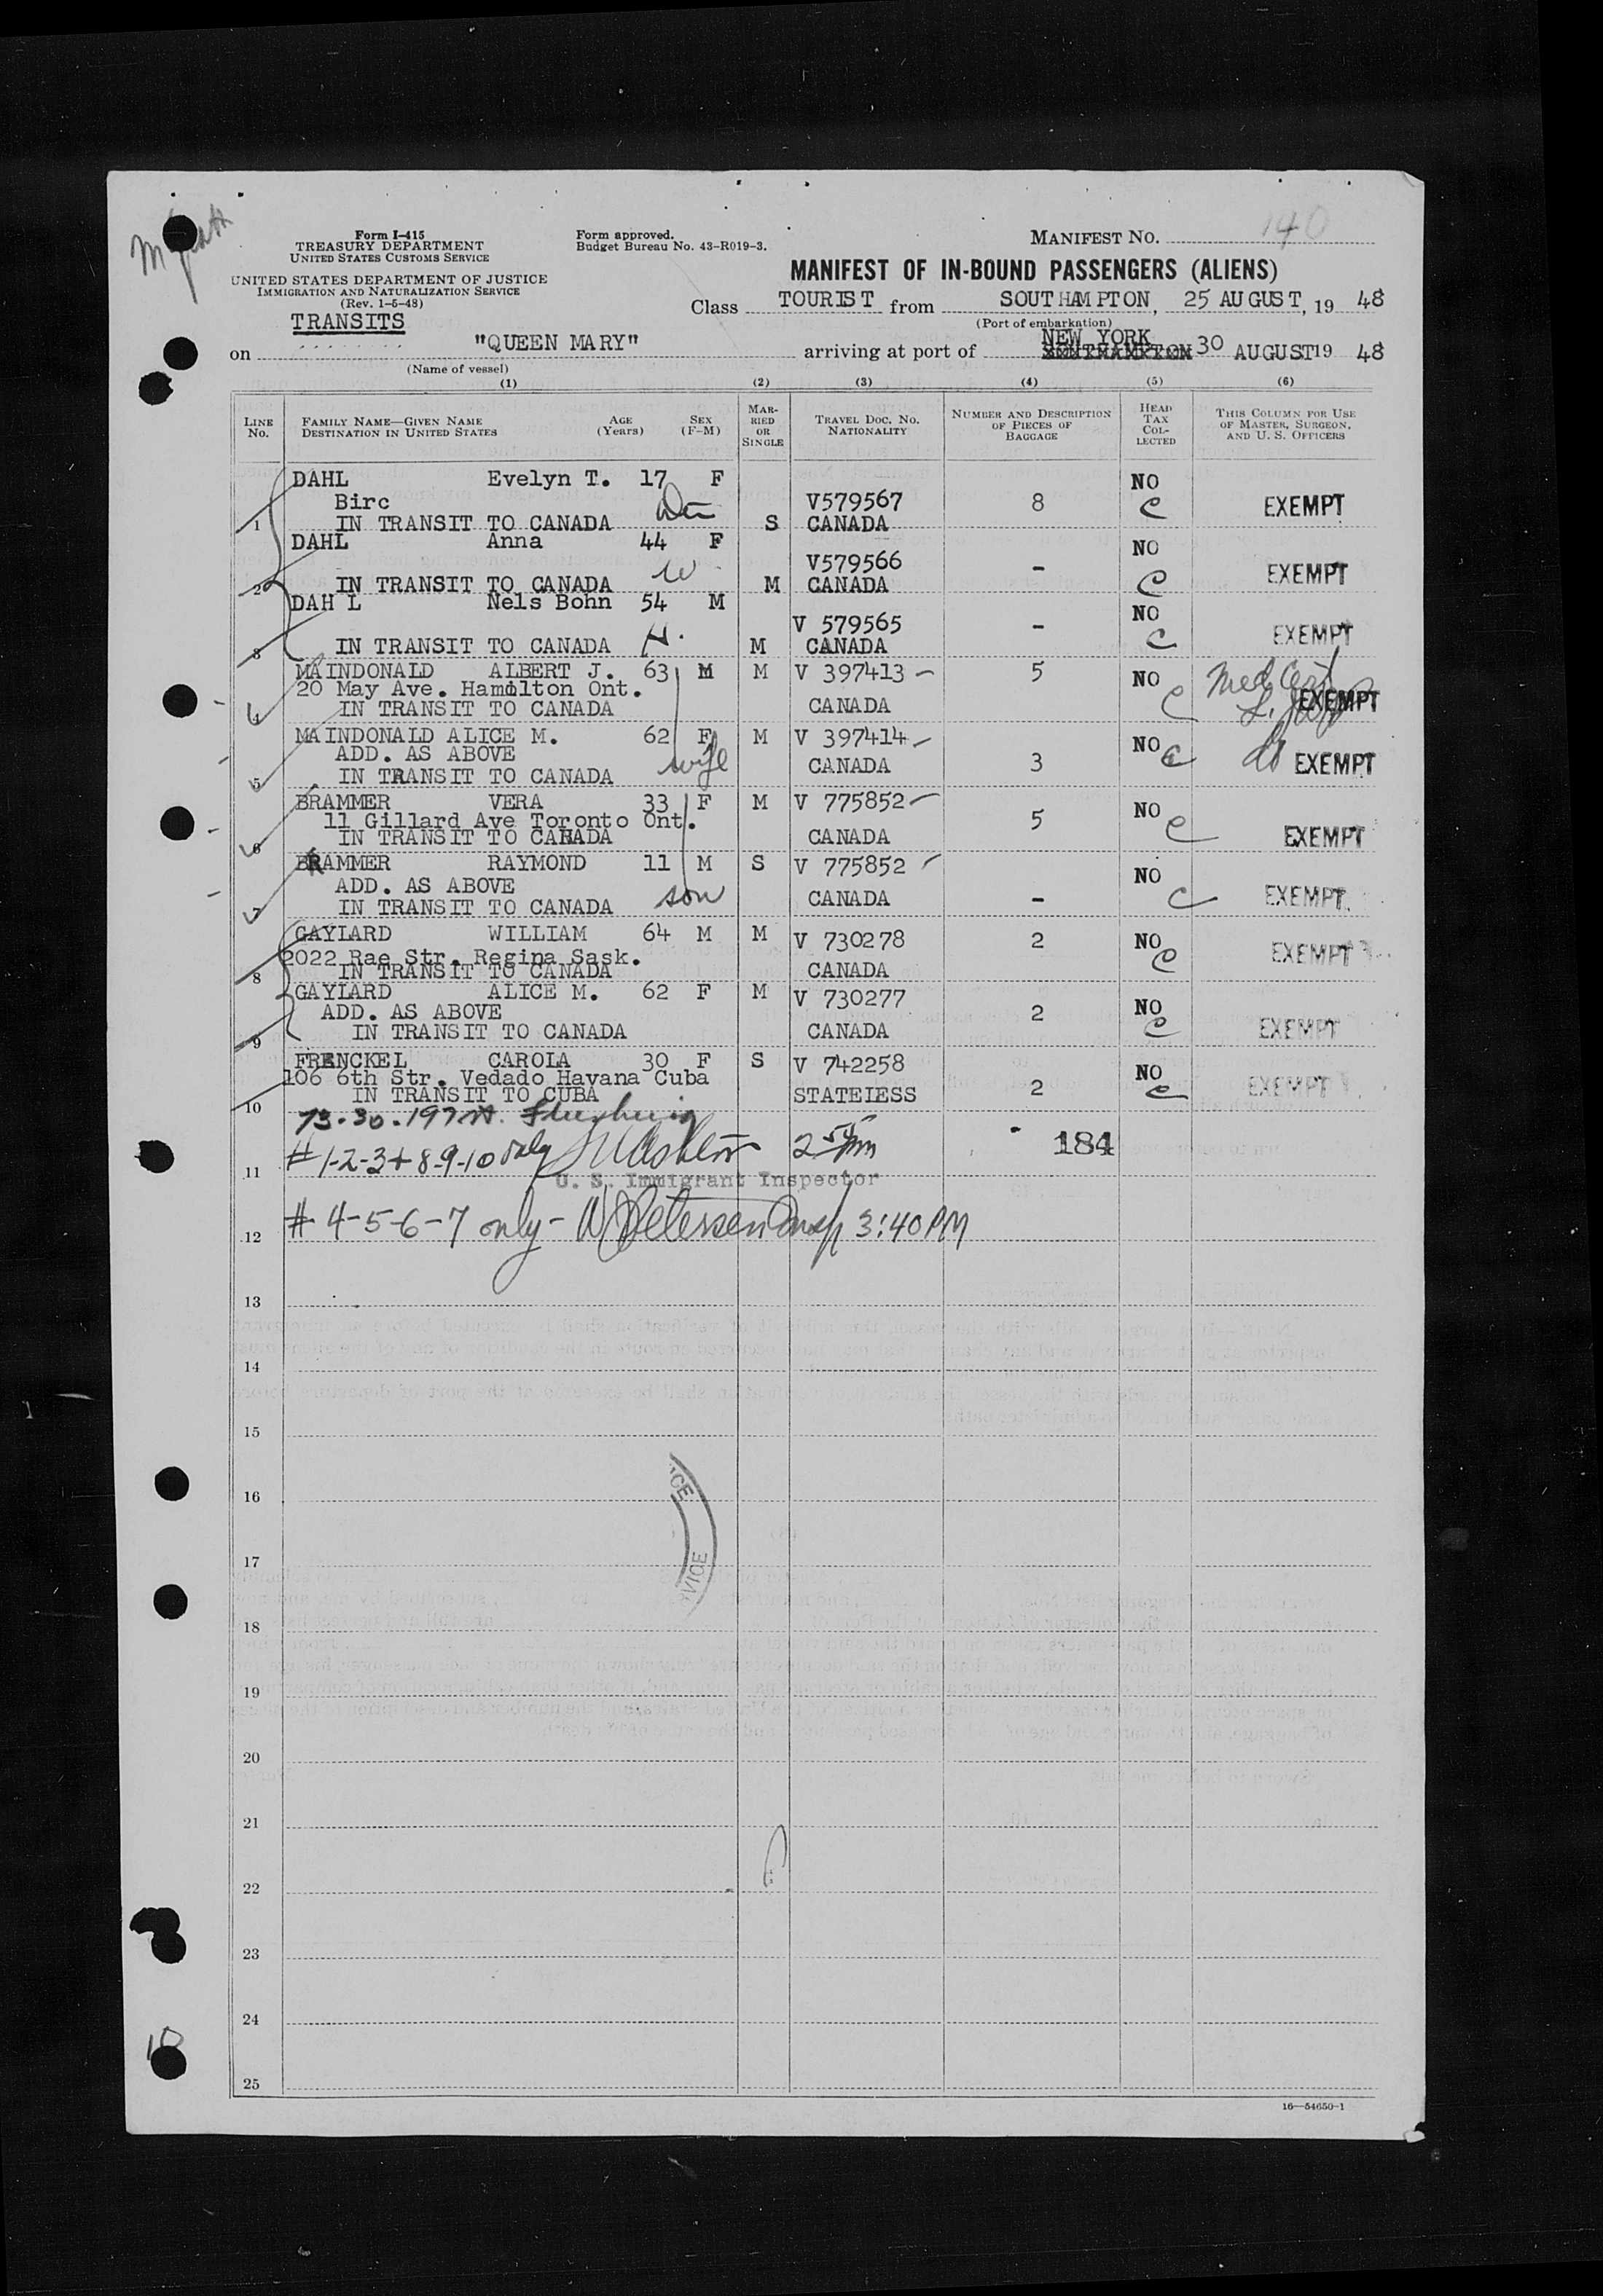 140
Form I-415
TREASURY DEPARTMENT
UNITED STATES CUSTOMS SERVICE
Form approved.
Budget Bureau No. 43-R019-3.
MANIFEST NO.
UNITED STATES DEPARTMENT OF JUSTICE
IMMIGRATION AND NATURALIZATION SERVICE
(Rev. 1-5-48)
MANIFEST OF IN-BOUND PASSENGERS (ALIENS)
TRANSITS
Class TOURIST from SOUTHAMPTON, 25 AUGUST, 19 48
(Port of embarkation)
on "QUEEN MARY" arriving at port of NEW YORK 30 AUGUST19 48
SOUTHAMPTON
(Name of vessel)
(1) (2) (3) (4) (5) (6)
LINE No. FAMILY NAME—GIVEN NAME DESTINATION IN UNITED STATES AGE (Years) SEX (F-M) MARRIED OR SINGLE TRAVEL DOC. NO. NATIONALITY NUMBER AND DESCRIPTION OF PIECES OF BAGGAGE HEAD TAX COLLECTED THIS COLUMN FOR USE OF MASTER, SURGEON, AND U. S. OFFICERS
DAHL Evelyn T. 17 F NO
Birc V579567 8 C EXEMPT
1 IN TRANSIT TO CANADA S CANADA
DAHL Anna 44 F NO
V579566 - EXEMPT
2 IN TRANSIT TO CANADA W M CANADA C
DAH L Nels Bohn 54 M NO
V 579565 - EXEMPT
3 IN TRANSIT TO CANADA H. M CANADA C
MAINDONALD ALBERT J. 63 M M V 397413 5 NO Med Cert
20 May Ave. Hamilton Ont. EXEMPT
4 IN TRANSIT TO CANADA CANADA C
MAINDONALD ALICE M. 62 F M V 397414 NO C
ADD. AS ABOVE wife 3 do EXEMPT
5 IN TRANSIT TO CANADA CANADA
BRAMMER VERA 33 F M V 775852 NO
11 Gillard Ave Toronto Ont. 5 C
6 IN TRANSIT TO CANADA CANADA EXEMPT
BRAMMER RAYMOND 11 M S V 775852 NO
ADD. AS ABOVE son - C EXEMPT
7 IN TRANSIT TO CANADA CANADA
GAYLARD WILLIAM 64 M M V 730278 2 NO
2022 Rae Str. Regina Sask. C EXEMPT
8 IN TRANSIT TO CANADA CANADA
GAYLARD ALICE M. 62 F M V 730277 NO
ADD. AS ABOVE 2 C EXEMPT
9 IN TRANSIT TO CANADA CANADA
FRENCKEL CAROLA 30 F S V 742258 NO
106 6th Str. Vedado Havana Cuba 2 C EXEMPT
10 IN TRANSIT TO CUBA STATELESS
73-30-197 St. Flushing
11 #1-2-3+8-9-10 only 184
U. S. Immigrant Inspector
12 #4-5-6-7 only - W Petersen Insp 3:40 PM
13
14
15
16
17
18
19
20
21
22
23
24
25
10
16—54650-1